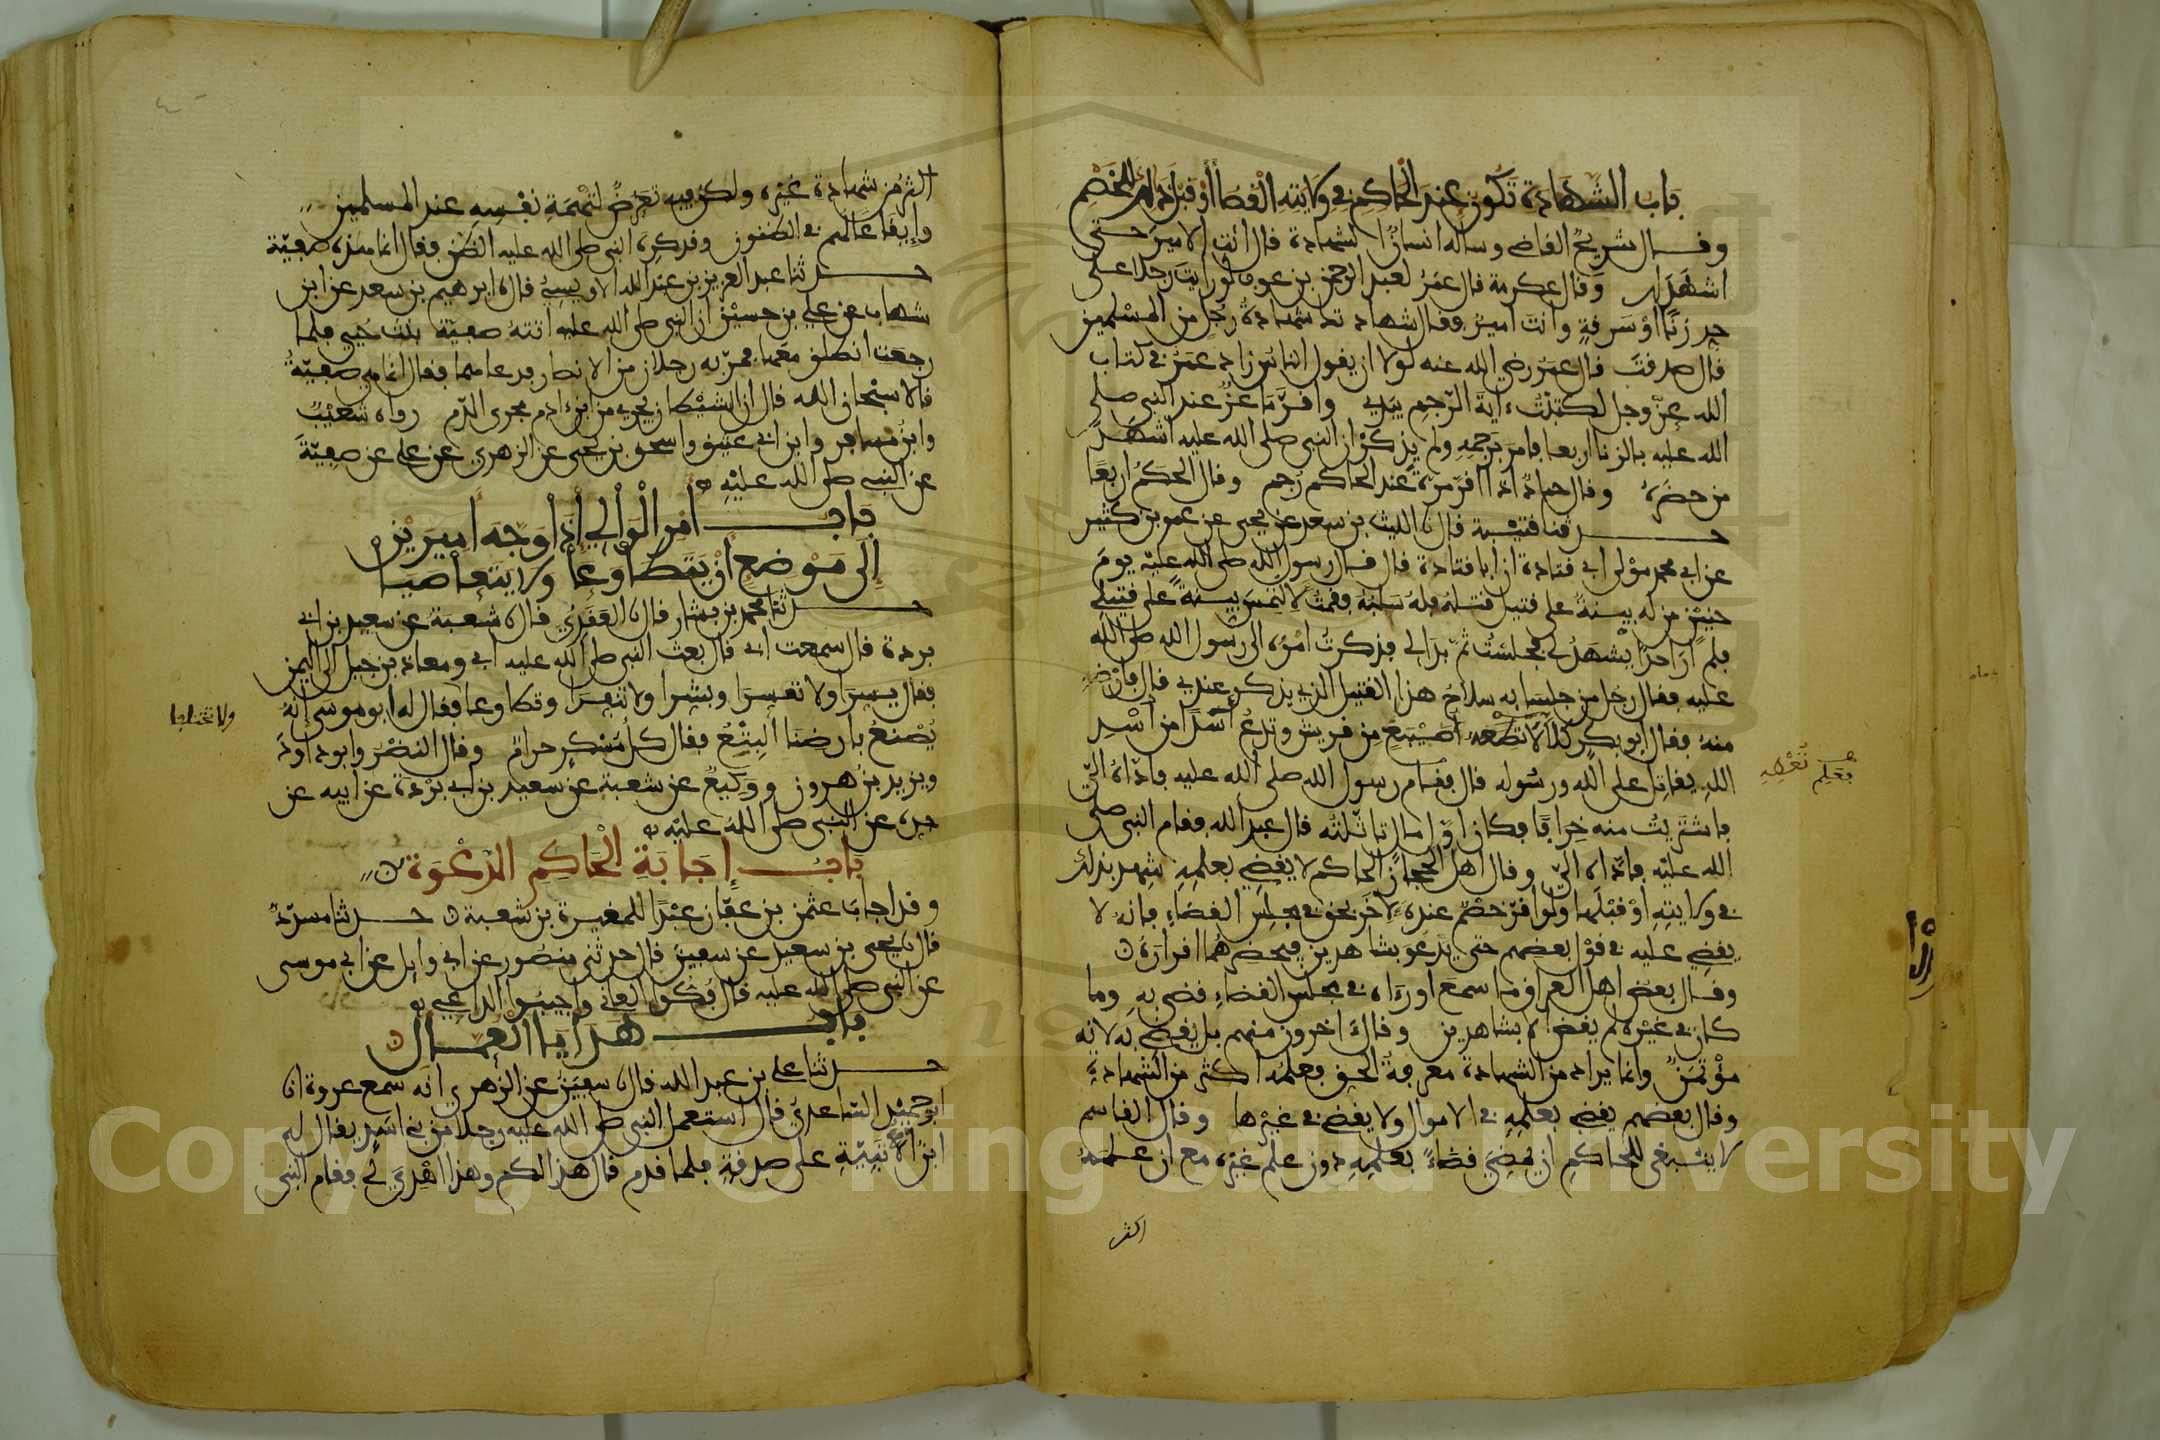 باب الشهادة تكون عند الحاكم في ولايته القضا أو قبل ذلك للخصم
وقال شريح القاضي وساله انسان الشهادة قال ائت الامير حتى
اشهد لك وقال عكرمة قال عمر لعبد الرحمن بن عوف لو رايت رجلا على
حد زنا أو سرقة وانت امير فقال شهادتك شهادة رجل من المسلمين
قال صدقت قال عمر رضي الله عنه لولا ان يقول الناس زاد عمر في كتاب
الله عز وجل لكتبت ءاية الرجم بيدي واقر ماعز عند النبي صلى
الله عليه بالزنا اربعا فامر برجمه ولم يذكر ان النبي صلى الله عليه اشهد
من حضره وقال حماد اذا اقر مرة عند الحاكم رجم وقال الحكم اربعا
حدثنا قتيبة قال نا الليث بن سعد عن يحيى عن عمر بن كثير
عن ابي محمد مولى ابي قتادة ان ابا قتادة قال قال رسول الله صلى الله عليه يوم
حنين من له بينة على قتيل قتله فله سلبه فقمت لالتمس بينة على قتيلي
فلم ار احدا يشهد لي فجلست ثم بدا لي فذكرت امره الى رسول الله صلى الله
عليه فقال رجل من جلسايه سلاح هذا القتيل الذي يذكر عندي قال فارضه
منه فقال ابو بكر كلا لا تعطه اصيبغ من قريش وتدع أسدا من أسد
الله يقاتل على الله ورسوله قال فقام رسول الله صلى الله عليه فاداه الي
فاشتريت منه خرافا فكان اول مال تاثلته قال عبد الله فقام النبي صلى
الله عليه فاداه الي وقال اهل الحجاز الحاكم لا يقضي بعلمه شهد بذلك
في ولايته او قبلها ولو اقر خصم عنده لاخر بحق في مجلس القضاء فانه لا
يقضي عليه في قول بعضهم حتى يدعو بشاهدين فيحضرهما اقراره
وقال بعض اهل العراق ما سمع او رءاه في مجلس القضاء قضى به وما
كان في غيره لم يقض الا بشاهدين وقال اخرون منهم بل يقضي به لانه
مؤتمن وانما يراد من الشهادة معرفة الحق فعلمه اكثر من الشهادة
وقال بعضهم يقضي بعلمه في الاموال ولا يقضي في غيرها وقال القاسم
لا ينبغي للحاكم ان يمضي قضاء بعلمه دون علم غيره مع ان علمه
اكثر
فعلم تعطه
اكثر من شهادة غيره ولكن فيه تعرض لتهمة نفسه عند المسلمين
وإيقاعا لهم في الظنون وقد كره النبي صلى الله عليه الظن فقال انما هذه صفية
حدثنا عبد العزيز بن عبد الله الاويسي قال نا ابرهيم بن سعد عن ابن
شهاب عن علي بن حسين ان النبي صلى الله عليه اتته صفية بنت حيي فلما
رجعت انطلق معها فمر به رجلان من الانصار فدعاهما فقال انما هي صفية
قالا سبحان الله قال ان الشيطان يجري من ابن ءادم مجرى الدم رواه شعيب
وابن مسافر وابن ابي عتيق واسحق بن يحيى عن الزهري عن علي عن صفية
عن النبي صلى الله عليه
باب أمر الوالي إذا وجه أميرين
إلى موضع أن يتطاوعا ولا يتعاصيا
حدثنا محمد بن بشار قال نا العقدي قال نا شعبة عن سعيد بن ابي
بردة قال سمعت ابي قال بعث النبي صلى الله عليه ابي ومعاذ بن جبل الى اليمن
فقال يسرا ولا تعسرا وبشرا ولا تنفرا وتطاوعا فقال له ابو موسى إنه
يصنع بارضنا البتع فقال كل مسكر حرام وقال النضر وابو داود
ويزيد بن هرون ووكيع عن شعبة عن سعيد بن ابي بردة عن ابيه عن
جده عن النبي صلى الله عليه
باب إجابة الحاكم الدعوة
وقد اجاب عثمن بن عفان عبدا للمغيرة بن شعبة حدثنا مسدد
قال نا يحيى بن سعيد عن سفين قال حدثني منصور عن ابي وايل عن ابي موسى
عن النبي صلى الله عليه قال فكوا العاني واجيبوا الداعي
باب هدايا العمال
حدثنا علي بن عبد الله قال نا سفين عن الزهري انه سمع عروة انا
ابو حميد الساعدي قال استعمل النبي صلى الله عليه رجلا من بني اسد يقال له
ابن الاتبية على صدقة فلما قدم قال هذا لكم وهذا اهدي لي فقام النبي
ولا تختلفا
Copyright © King Saud University